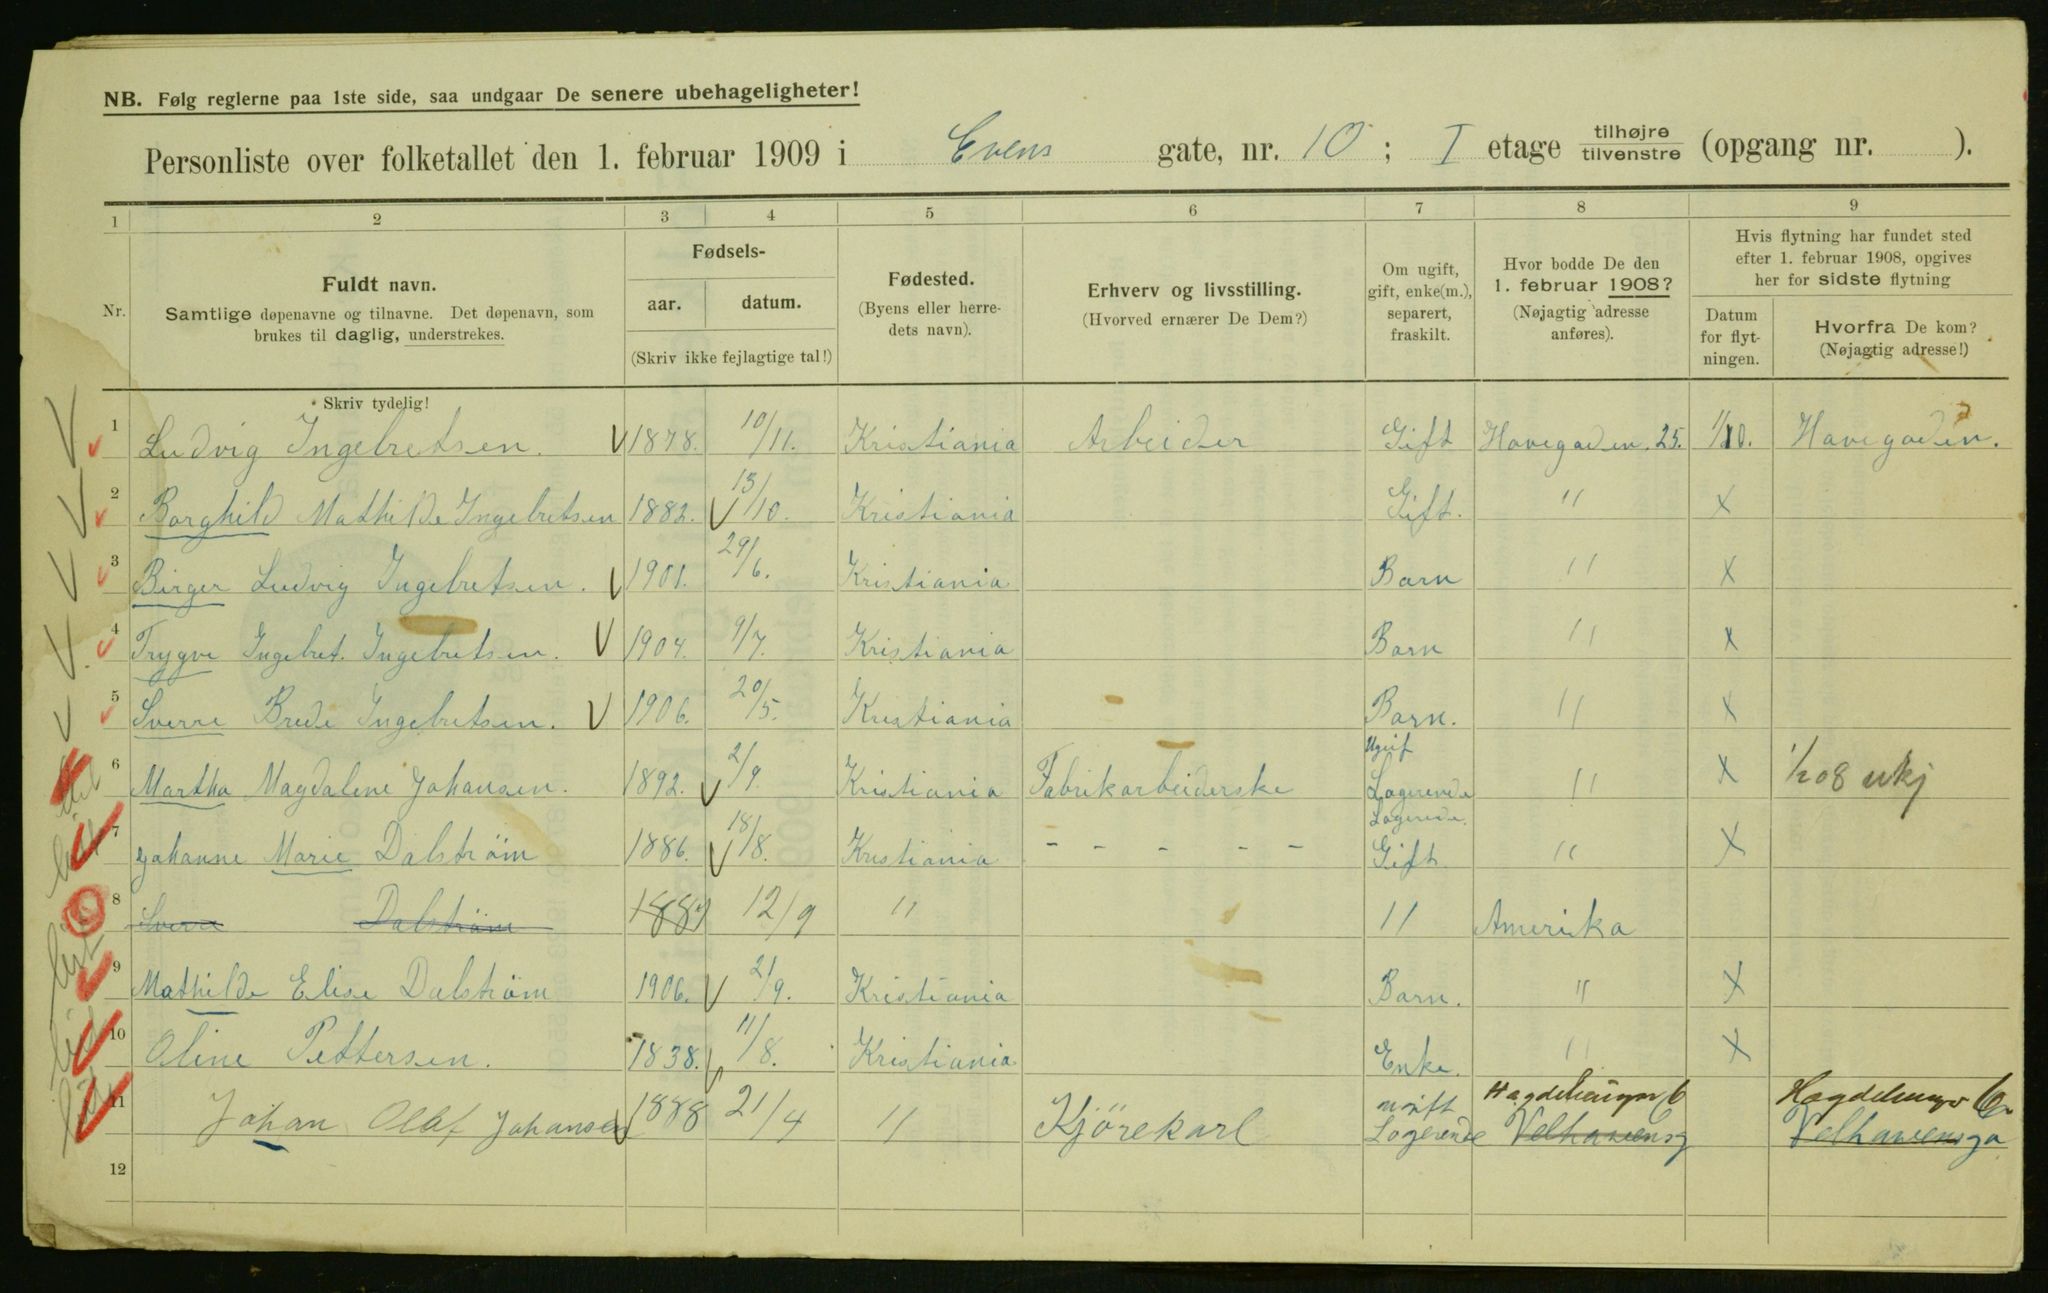 NB. Følg reglerne paa 1ste side, saa undgaar De senere ubehageligheter!
Personliste over folketallet den 1. februar 1909 i Evens gate, nr. 10 ; I etage tilhøjre/tilvenstre (opgang nr. ).
1 2 3 4 5 6 7 8 9
Nr.
Fuldt navn.
Samtlige døpenavne og tilnavne. Det døpenavn, som
brukes til daglig, understrekes.
Skriv tydelig!
Fødsels-
aar. datum.
(Skriv ikke fejlagtige tal!)
Fødested.
(Byens eller herre-
dets navn).
Erhverv og livsstilling.
(Hvorved ernærer De Dem?)
Om ugift,
gift, enke(m.),
separert,
fraskilt.
Hvor bodde De den
1. februar 1908?
(Nøjagtig adresse
anføres).
Hvis flytning har fundet sted
efter 1. februar 1908, opgives
her for sidste flytning
Datum
for flyt-
ningen.
Hvorfra De kom?
(Nøjagtig adresse!)
1 Ludvig Ingebretsen. 1878. 10/11. Kristiania Arbeider Gift Havegaden. 25. Havegaden.
2 Borghild Mathilde Ingebretsen 1882. 13/10. Kristiania Gift. " X
3 Birger Ludvig Ingebretsen. 1901. 29/6. Kristiania Barn " X
4 Trygve Ingebret. Ingebretsen. 1904. 9/7. Kristiania Barn " X
5 Sverre Brede Ingebretsen. 1906. 20/5. Kristiania Barn. " X
6 Martha Magdalene Johansen. 1892. 2/9. Kristiania Fabrikarbeiderske Ugif Logerende " X 1/2 08 ukj
7 Johanne Marie Dalstrøm 1886. 18/8. Kristiania - - - - - Logerede. Gift. " X
8 Sverre Dalstrøm 12/9 " " Amerika
9 Mathilde Elise Dalstrøm 1906. 21/9. Kristiania Barn. " X
10 Oline Pettersen. 1838. 11/8. Kristiania Enke. " X
11 Johan Olaf Johansen 1888 21/4 " Kjörekarl ugift Logerende Velhavensg Velhavensga
12